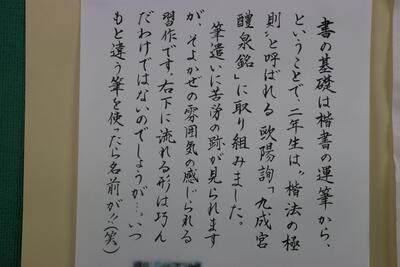 書の基礎は楷書の運筆から、
ということで、二年生は〝楷法の極
則〟と呼ばれる 欧陽詢「九成宮
醴泉銘」に取り組みました。
筆遣いに苦労の跡が見られます
が、そよかぜの雰囲気の感じられる
習作です。右下に流れる形は巧ん
だわけではないのでしょうが…。いつ
もと違う筆を使ったら名前が!!(笑)